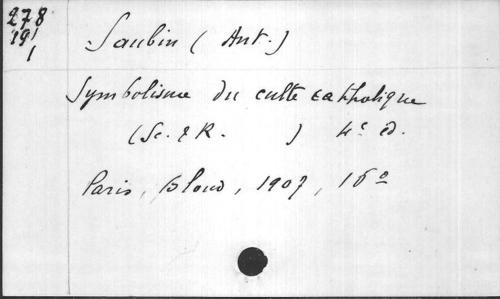 278
19¹
1
Saubin ( Ant. )
Symbolisme du culte catholique
(Sc. & R. ) 4e éd.
Paris, Bloud, 1907, 16o